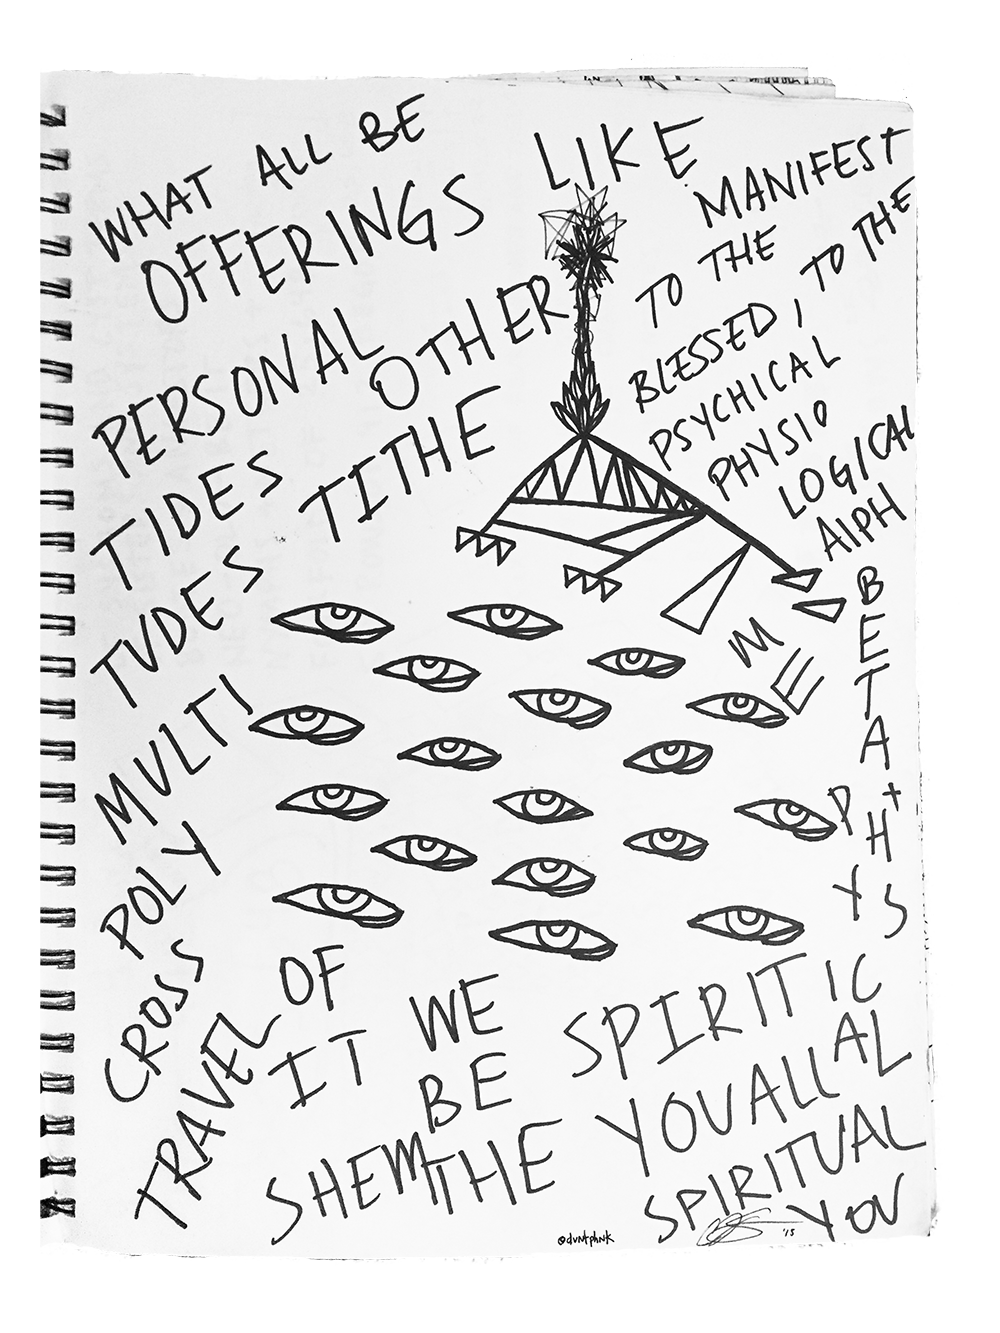 WHAT ALL BE
OFFERINGS
PERSONAL OTHER
TIDES TITHE
TVDES
MVLTI
POLY
CROSS
TRAVEL OF
IT
WE
BE
SHEMTHE
LIKE
MANIFEST
TO THE
BLESSED, TO THE
PSYCHICAL
PHYSIO
LOGICAL
AlPH
BETA+HS
ME
PY
SPIRITIC
YOUALL AL
SPIRITUAL
YOV
'15
@dvntphnk